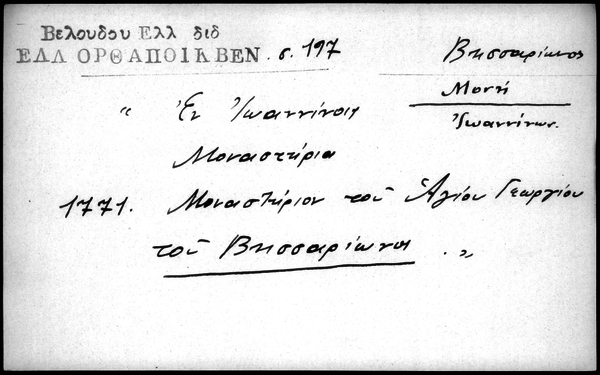 Βελουδου Ελλ διδ
ΕΛΛ ΟΡΘ ΑΠΟΙΚ ΒΕΝ. σ. 197
Βησσαρίωνος
Μονή
Ἰωαννίνων.
" Ἐν Ἰωαννίνοις
Μοναστήρια
1771. Μοναστήριον τοῦ Ἁγίου Γεωργίου
τοῦ Βησσαρίωνος . "